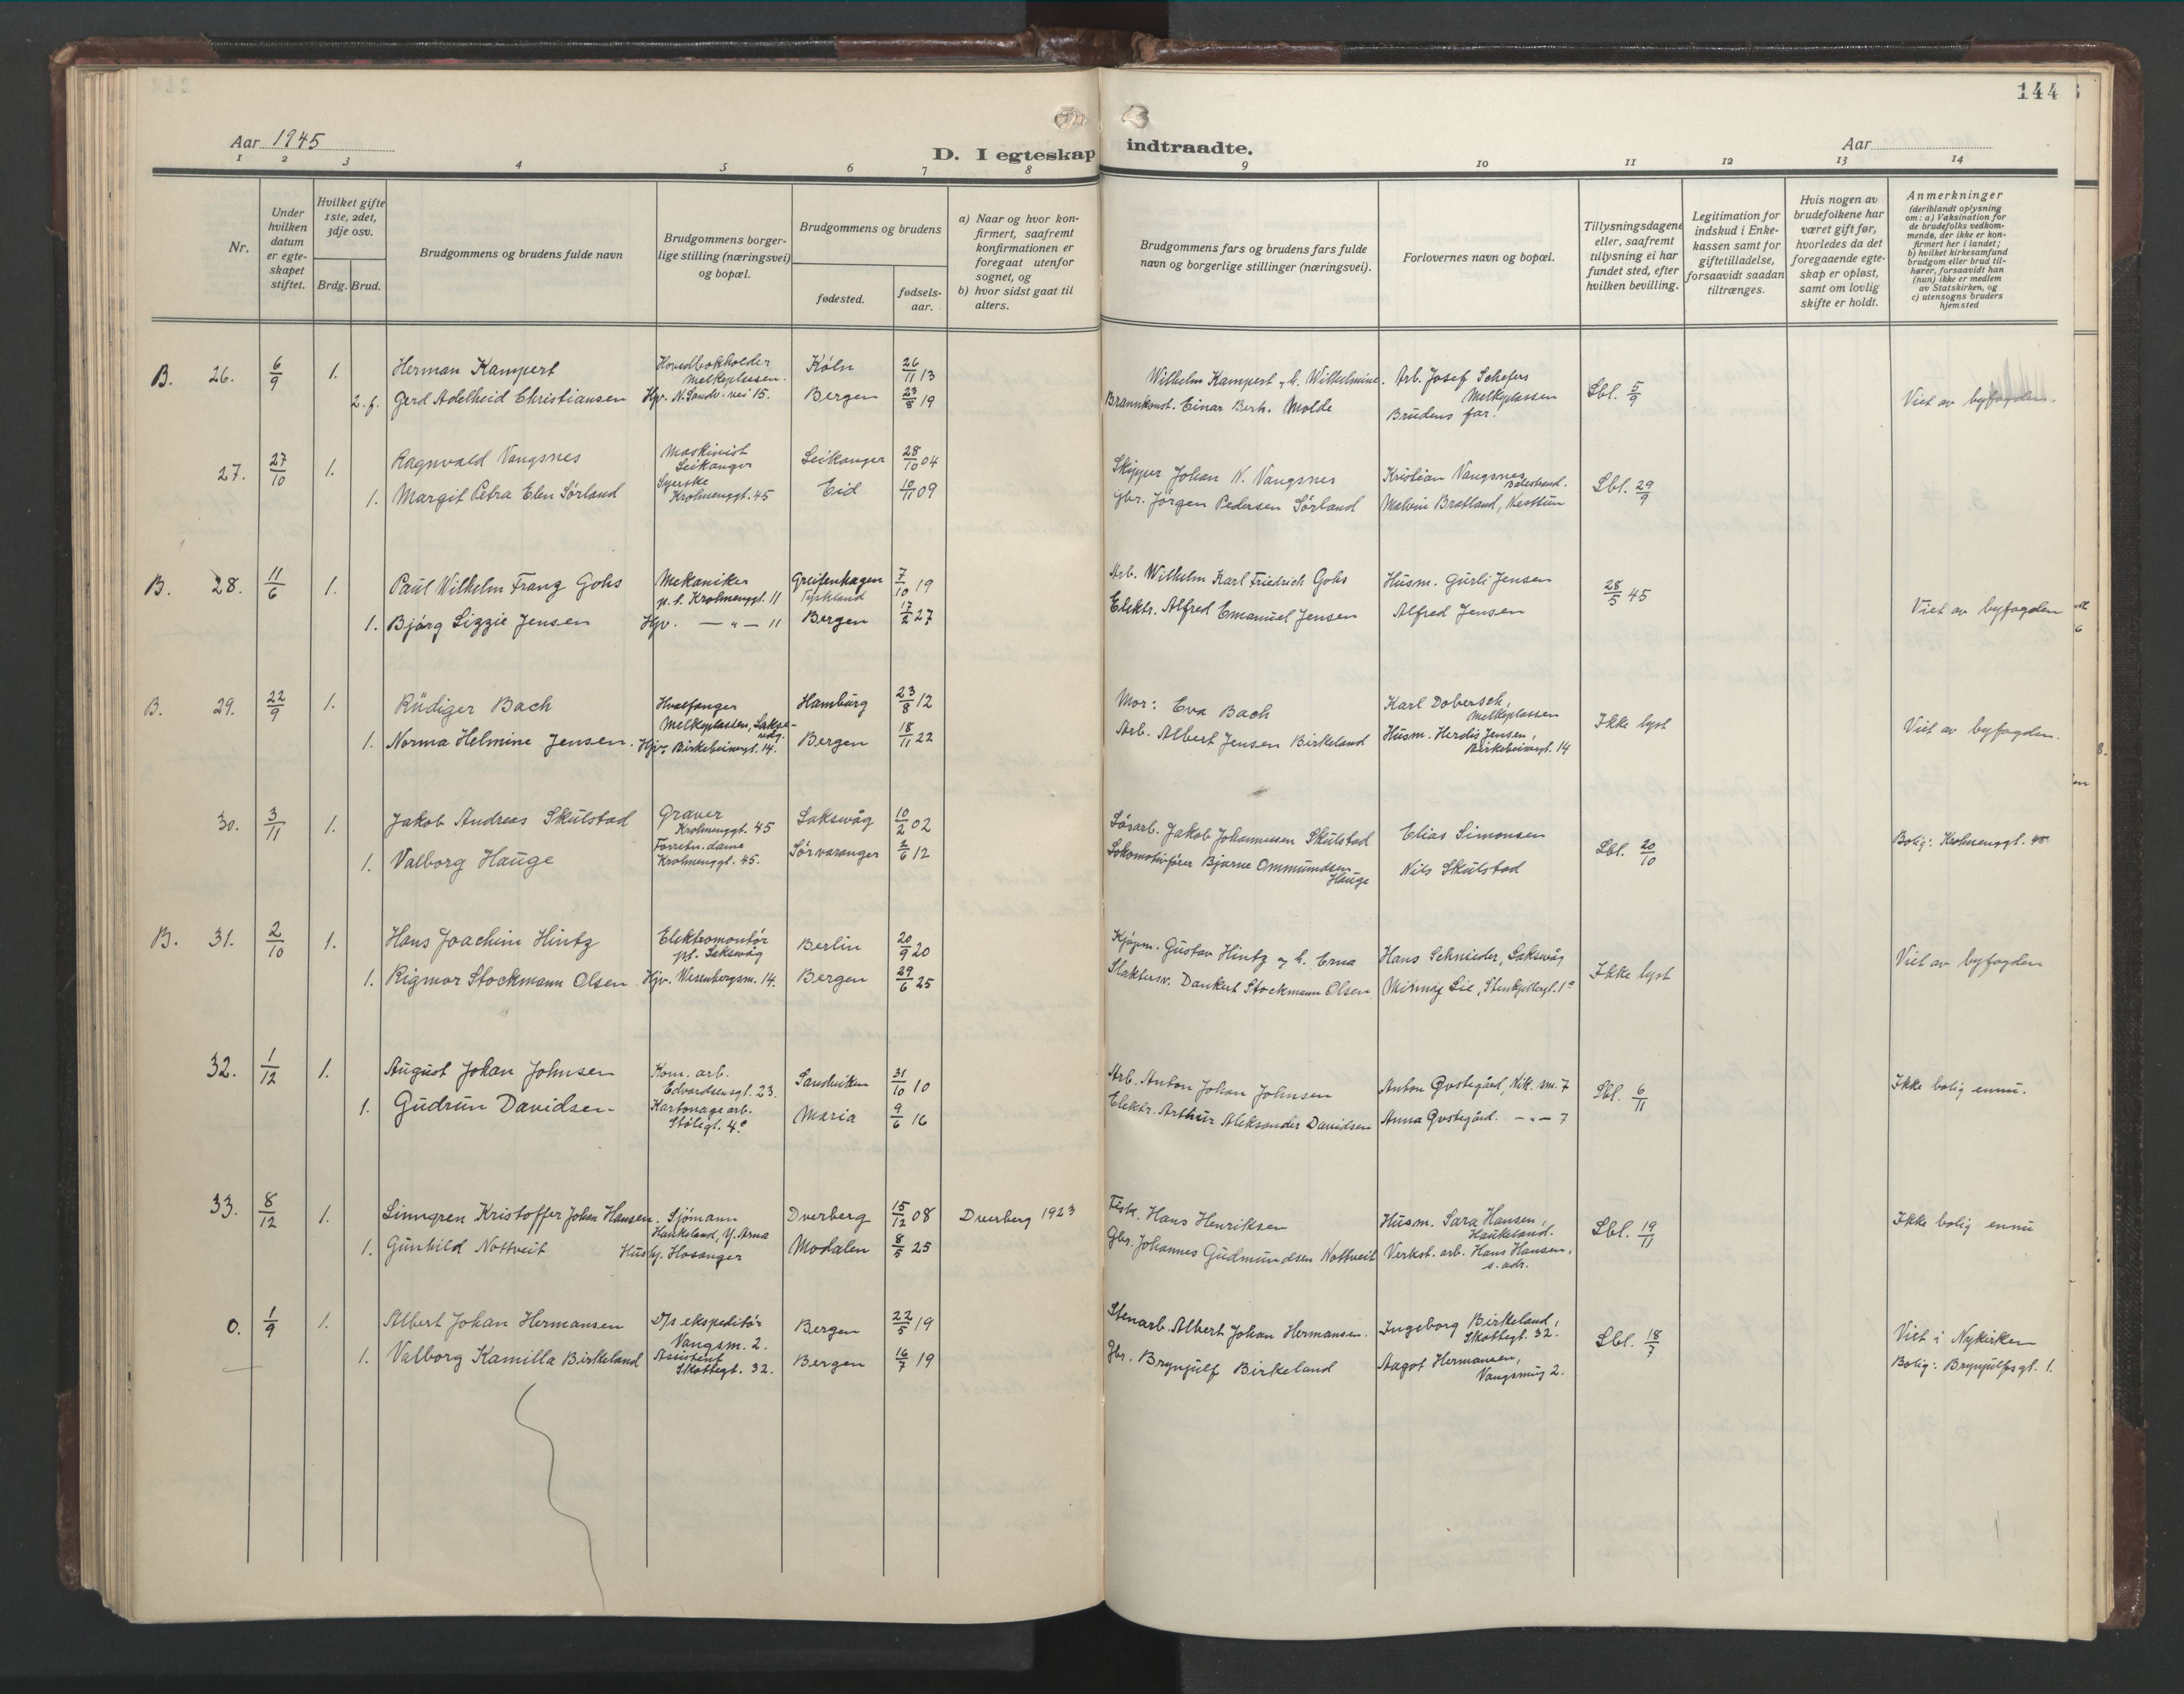 144
Aar 1945
D. I egteskap indtraadte.
Aar
1 2 3 4 5 6 7 8 9 10 11 12 13 14
Nr.
Under hvilken datum er egte-skapet stiftet.
Hvilket gifte 1ste, 2det, 3dje osv.
Brdg. Brud.
Brudgommens og brudens fulde navn
Brudgommens borger-lige stilling (næringsvei) og bopæl.
Brudgommens og brudens
fødested.
fødsels-aar.
a) Naar og hvor kon-firmert, saafremt konfirmationen er foregaat utenfor sognet, og
b) hvor sidst gaat til alters.
Brudgommens fars og brudens fars fulde navn og borgerlige stillinger (næringsvei).
Forlovernes navn og bopæl.
Tillysningsdagene eller, saafremt tillysning ei har fundet sted, efter hvilken bevilling.
Legitimation for indskud i Enke-kassen samt for giftetilladelse, forsaavidt saadan tiltrænges.
Hvis nogen av brudefolkene har været gift før, hvorledes da det foregaaende egte-skap er opløst, samt om lovlig skifte er holdt.
Anmerkninger
(deriblandt oplysning om: a) Vaksination for de brudefolks vedkom-mende, der ikke er kon-firmert her i landet; b) hvilket kirkesamfund brudgom eller brud til-hører, forsaavidt han (hun) ikke er medlem av Statskirken, og c) utensogns bruders hjemsted
B. 26. 6/9 1. Herman Kampert Hovedbokholder Melkeplassen. Köln 26/11 13 Wilhelm Kampert og h. Wilhelmine. Arb. Josef Schefers Melkeplassen Lbl. 5/9 Viet av byfogden.
2. f. Gerd Adelheid Christiansen Hjv. N. Sandv. vei 15. Bergen 23/8 19 Brannkonst. Einar Berh. Molde Brudens far.
27. 27/10 1. Ragnvald Vangsnes Maskinist Leikanger Leikanger 28/10 04 Skipper Johan N. Vangsnes Kristian Vangsnes Balestrand. Lbl. 29/9
1. Margit Petra Elen Sørland Syerske Krohnenggt. 45 Eid 10/11 09 Gbr. Jørgen Pedersen Sørland Malvin Bratland, Nesttun
B. 28. 11/6 1. Paul Wilhelm Franz Gohs Mekaniker p.t. Krohnenggt. 11 Greifenhagen Tyskland 7/10 19 Arb. Wilhelm Karl Friedrich Gohs Husm. Gurli Jensen 28/5 45 Viet av byfogden
1. Bjørg Lizzie Jensen Hjv. — " — 11 Bergen 17/2 27 Elektr. Alfred Emanuel Jensen Alfred Jensen
B. 29. 22/9 1. Rüdiger Bach Hvalfanger Melkeplassen, Lakse-våg. Hamburg 23/8 12 Mor: Eva Bach Karl Dobersch, Melkeplassen Ikke lyst Viet av byfogden.
1. Norma Helmine Jensen. Hjv. Birkebeinergt. 14. Bergen 18/11 22 Arb. Albert Jensen Birkeland Husm. Herdis Jensen, Birkebeinergt. 14
30. 3/11 1. Jakob Andreas Skulstad Graver Krohnenggt. 45 Laksevåg 10/2 02 Løsarb. Jakob Johannessen Skulstad Elias Simonsen Lbl. 20/10 Bolig: Krohnenggt. 45
1. Valborg Hauge Forretn. dame Krohnenggt. 45. Sørvaranger 2/6 12 Lokomotivfører Bjarne Ommundsen Hauge Nils Skulstad
B. 31. 2/10 1. Hans Joachim Hintz Elektromontør pt. Laksevåg Berlin 20/9 20 Kjøpm. Gustav Hintz og h. Erna Hans Schnieder, Laksevåg Ikke lyst Viet av byfogden
1. Rigmor Stockmann Olsen Hjv. Wesenbergsm. 14. Bergen 29/6 25 Slaktersv. Dankert Stockmann Olsen Lie, Stenkjellergt. 1a
32. 1/12 1. August Johan Johnsen Kom. arb. Edvardsensgt. 23. Sandviken 31/10 10 Arb. Anton Johan Johnsen Anton Qvstegård, Nik. sm. 7 Lbl. 6/11 Ikke bolig ennu.
1. Gudrun Davidsen Kartonage arb. Stølegt. 4a Maria 9/6 16 Elektr. Arthur Aleksander Davidsen Anna Qvstegård. — " — 7
33. 8/12 1. Linngren Kristoffer Johan Hansen. Sjømann Haukeland, Y. Arna Dverberg 15/12 08 Dverberg 1923 Fisk. Hans Henriksen Husm. Sara Hansen, Haukeland. Lbl. 19/11 Ikke bolig ennu
1. Gunhild Nottveit Hushj. Hosanger Modalen 8/5 25 Gbr. Johannes Gudmundsen Nottveit Verkst. arb. Hans Hansen, s. adr.
0. 1/9 1. Albert Johan Hermansen D/s ekspeditør Vangsm. 2. Bergen 22/5 19 Stenarb. Albert Johan Hermansen. Ingeborg Birkeland, Skottegt. 32. Lbl. 18/7 Viet i Nykirken
1. Valborg Kamilla Birkeland Assistent Skottegt. 32. Bergen 16/7 19 Gbr. Brynjulf Birkeland Aagot Hermansen, Vangsmug 2. Bolig: Brynjulfsgt. 1.